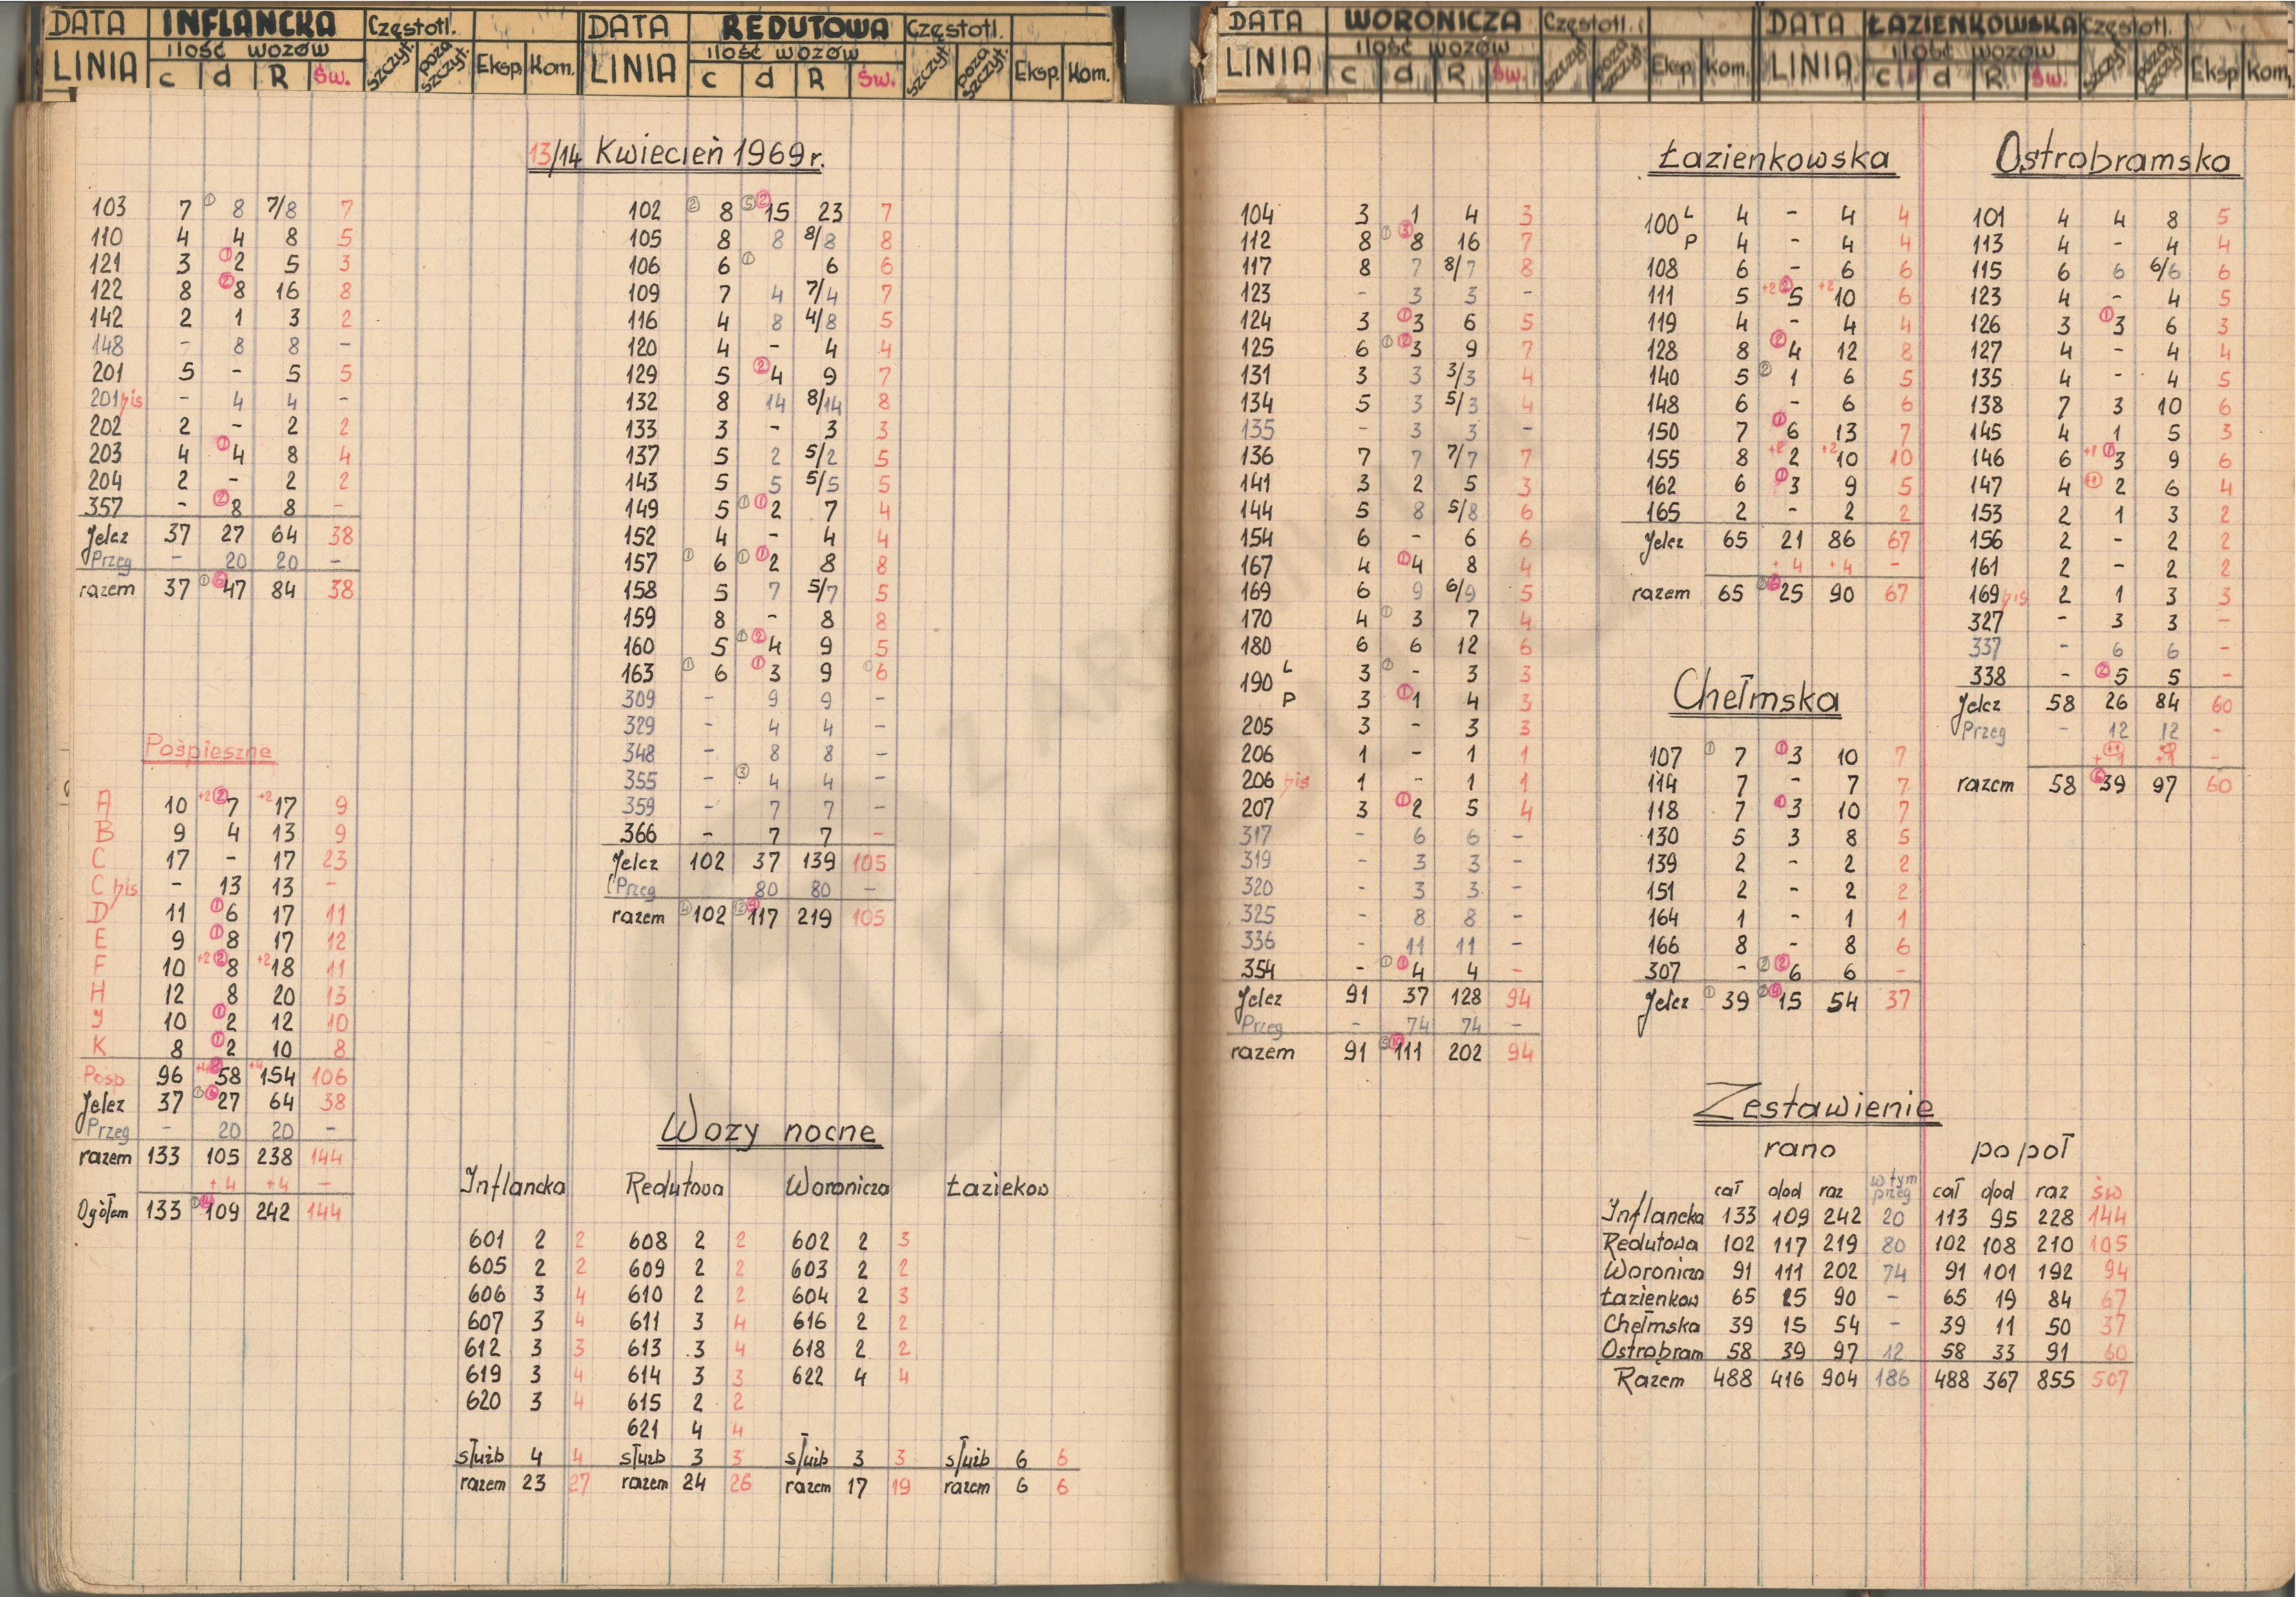 DATA INFLANCKA Częstotl.
LINIA ilość wozów c d R Św. szczyt. poza szczyt. Eksp. Kom.
DATA REDUTOWA Częstotl.
LINIA ilość wozów c d R Św. szczyt. poza szczyt. Eksp. Kom.
13/14 Kwiecień 1969 r.
103 7 ① 8 7/8 7
110 4 4 8 5
121 3 ① 2 5 3
122 8 ② 8 16 8
142 2 1 3 2
148 - 8 8 -
201 5 - 5 5
201 bis - 4 4 -
202 2 - 2 2
203 4 ① 4 8 4
204 2 - 2 2
357 - ② 8 8 -
Jelcz 37 27 64 38
Przeg - 20 20 -
razem 37 ① ⑥ 47 84 38
Pośpieszne
A 10 +2 ② 7 +2 17 9
B 9 4 13 9
C 17 - 17 23
C bis - 13 13 -
D 11 ① 6 17 11
E 9 ① 8 17 12
F 10 +2 ② 8 +2 18 11
H 12 8 20 13
J 10 ① 2 12 10
K 8 ① 2 10 8
Pośp 96 +4 ⑧ 58 +4 154 106
Jelcz 37 ① ⑥ 27 64 38
Przeg - 20 20 -
razem 133 105 238 144
+4 +4 -
Ogółem 133 ① ⑭ 109 242 144
102 ② 8 ⑤ ② 15 23 7
105 8 8 8/8 8
106 6 ① 6 6
109 7 4 7/4 7
116 4 8 4/8 5
120 4 - 4 4
129 5 ② 4 9 7
132 8 14 8/14 8
133 3 - 3 3
137 5 2 5/2 5
143 5 5 5/5 5
149 5 ① ① 2 7 4
152 4 - 4 4
157 ① 6 ① ① 2 8 8
158 5 7 5/7 5
159 8 - 8 8
160 5 ① ② 4 9 5
163 ① 6 ① 3 9 ① 6
309 - 9 9 -
329 - 4 4 -
348 - 8 8 -
355 - ③ 4 4 -
359 - 7 7 -
366 - 7 7 -
Jelcz 102 37 139 105
Przeg 80 80 -
razem ④ 102 ⑫ ⑨ 117 219 105
Wozy nocne
Inflancka Redutowa Woronicza Łaziekow
601 2 2 608 2 2 602 2 3
605 2 2 609 2 2 603 2 2
606 3 4 610 2 2 604 2 3
607 3 4 611 3 4 616 2 2
612 3 3 613 3 4 618 2 2
619 3 4 614 3 3 622 4 4
620 3 4 615 2 2
621 4 4
służb 4 4 służb 3 3 służb 3 3 służb 6 6
razem 23 27 razem 24 26 razem 17 19 razem 6 6
DATA WORONICZA Częstotl.
LINIA ilość wozów c d R Św. szczyt. poza szczyt. Eksp. Kom.
DATA ŁAZIENKOWSKA Częstotl.
LINIA ilość wozów c d R Św. szczyt. poza szczyt. Eksp Kom.
104 3 1 4 3
112 8 ① ③ 8 16 7
117 8 7 8/7 8
123 - 3 3 -
124 3 ① 3 6 5
125 6 ① ② 3 9 7
131 3 3 3/3 4
134 5 3 5/3 4
135 - 3 3 -
136 7 7 7/7 7
141 3 2 5 3
144 5 8 5/8 6
154 6 - 6 6
167 4 ① 4 8 4
169 6 9 6/9 5
170 4 ① 3 7 4
180 6 6 12 6
190 L 3 ① - 3 3
P 3 ① 1 4 3
205 3 - 3 3
206 1 - 1 1
206 bis 1 - 1 1
207 3 ① 2 5 4
317 - 6 6 -
319 - 3 3 -
320 - 3 3 -
325 - 8 8 -
336 - 11 11 -
354 - ① ① 4 4 -
Jelcz 91 37 128 94
Przeg - 74 74 -
razem 91 ⑤ ⑩ 111 202 94
Łazienkowska
100 L 4 - 4 4
P 4 - 4 4
108 6 - 6 6
111 5 +2 ② 5 +2 10 6
119 4 - 4 4
128 8 ② 4 12 8
140 5 ② 1 6 5
148 6 - 6 6
150 7 ① 6 13 7
155 8 +2 2 +2 10 10
162 6 ① 3 9 5
165 2 - 2 2
Jelcz 65 21 86 67
+4 +4 -
razem 65 ② ⑥ 25 90 67
Chełmska
107 ① 7 ① 3 10 7
114 7 - 7 7
118 7 ① 3 10 7
130 5 3 8 5
139 2 - 2 2
151 2 - 2 2
164 1 - 1 1
166 8 - 8 6
307 - ② ② 6 6 -
Jelcz ① 39 ② ④ 15 54 37
Ostrobramska
101 4 4 8 5
113 4 - 4 4
115 6 6 6/6 6
123 4 - 4 5
126 3 ① 3 6 3
127 4 - 4 4
135 4 - 4 5
138 7 3 10 6
145 4 1 5 3
146 6 +1 ① 3 9 6
147 4 +1 2 6 4
153 2 1 3 2
156 2 - 2 2
161 2 - 2 2
169 bis 2 1 3 3
327 - 3 3 -
337 - 6 6 -
338 - ② 5 5 -
Jelcz 58 26 84 60
Przeg - 12 12 -
razem 58 ⑥ 39 97 60
Zestawienie
rano po poł
cał dod raz w tym przeg cał dod raz św
Inflancka 133 109 242 20 113 95 228 144
Redutowa 102 117 219 80 102 108 210 105
Woronicza 91 111 202 74 91 101 192 94
Łazienkow 65 25 90 - 65 19 84 67
Chełmska 39 15 54 - 39 11 50 37
Ostrobram 58 39 97 12 58 33 91 60
Razem 488 416 904 186 488 367 855 507